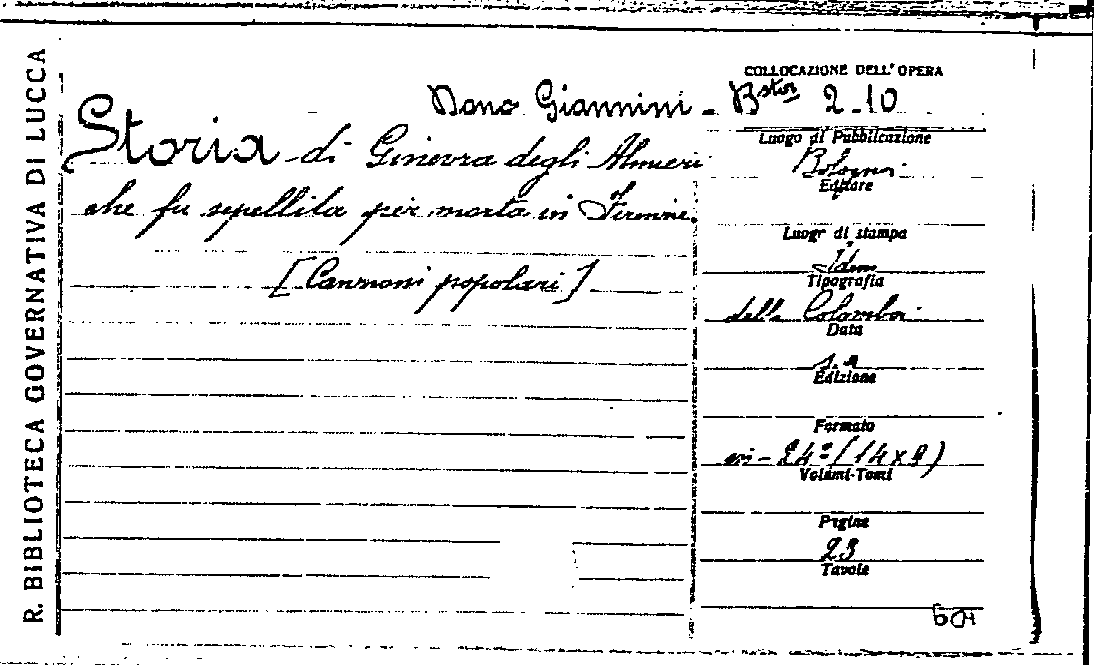 R. BIBLIOTECA GOVERNATIVA DI LUCCA
Dono Giannini -
Storia di Ginevra degli Almieri
che fu sepellita per morta in Firenze.
[Canzoni popolari]
COLLOCAZIONE DELL'OPERA
Bstor 2-10
Luogo di Pubblicazione
Bologna
Editore
Luogo di stampa
Idem
Tipografia
della Colomba
Data
s. a
Edizione
Formato
in-24º (14x9)
Volumi-Tomi
Pagine
23
Tavole